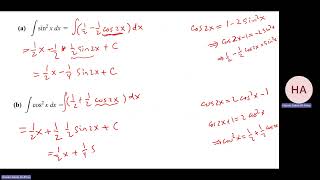 (a) ∫ sin²x dx = ∫(½ - ½ cos2x) dx
= ½x - ½ · ½ sin2x + C
= ½x - ¼ sin2x + C
cos2x = 1 - 2sin²x
⇒ cos2x - 1 = -2sin²x
⇒ ½ - ½cos2x = sin²x
(b) ∫ cos²x dx = ∫(½ + ½ cos2x) dx
= ½x + ½ · ½ sin2x + C
= ½x + ¼ s
cos2x = 2cos²x - 1
cos2x + 1 = 2cos²x
⇒ cos²x = ½ + ½ cos2x
HA